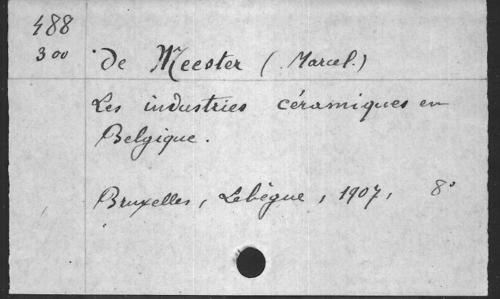 488
300
de Meester (Marcel.)
Les industries céramiques en
Belgique.
Bruxelles, Lebègue, 1907, 8°